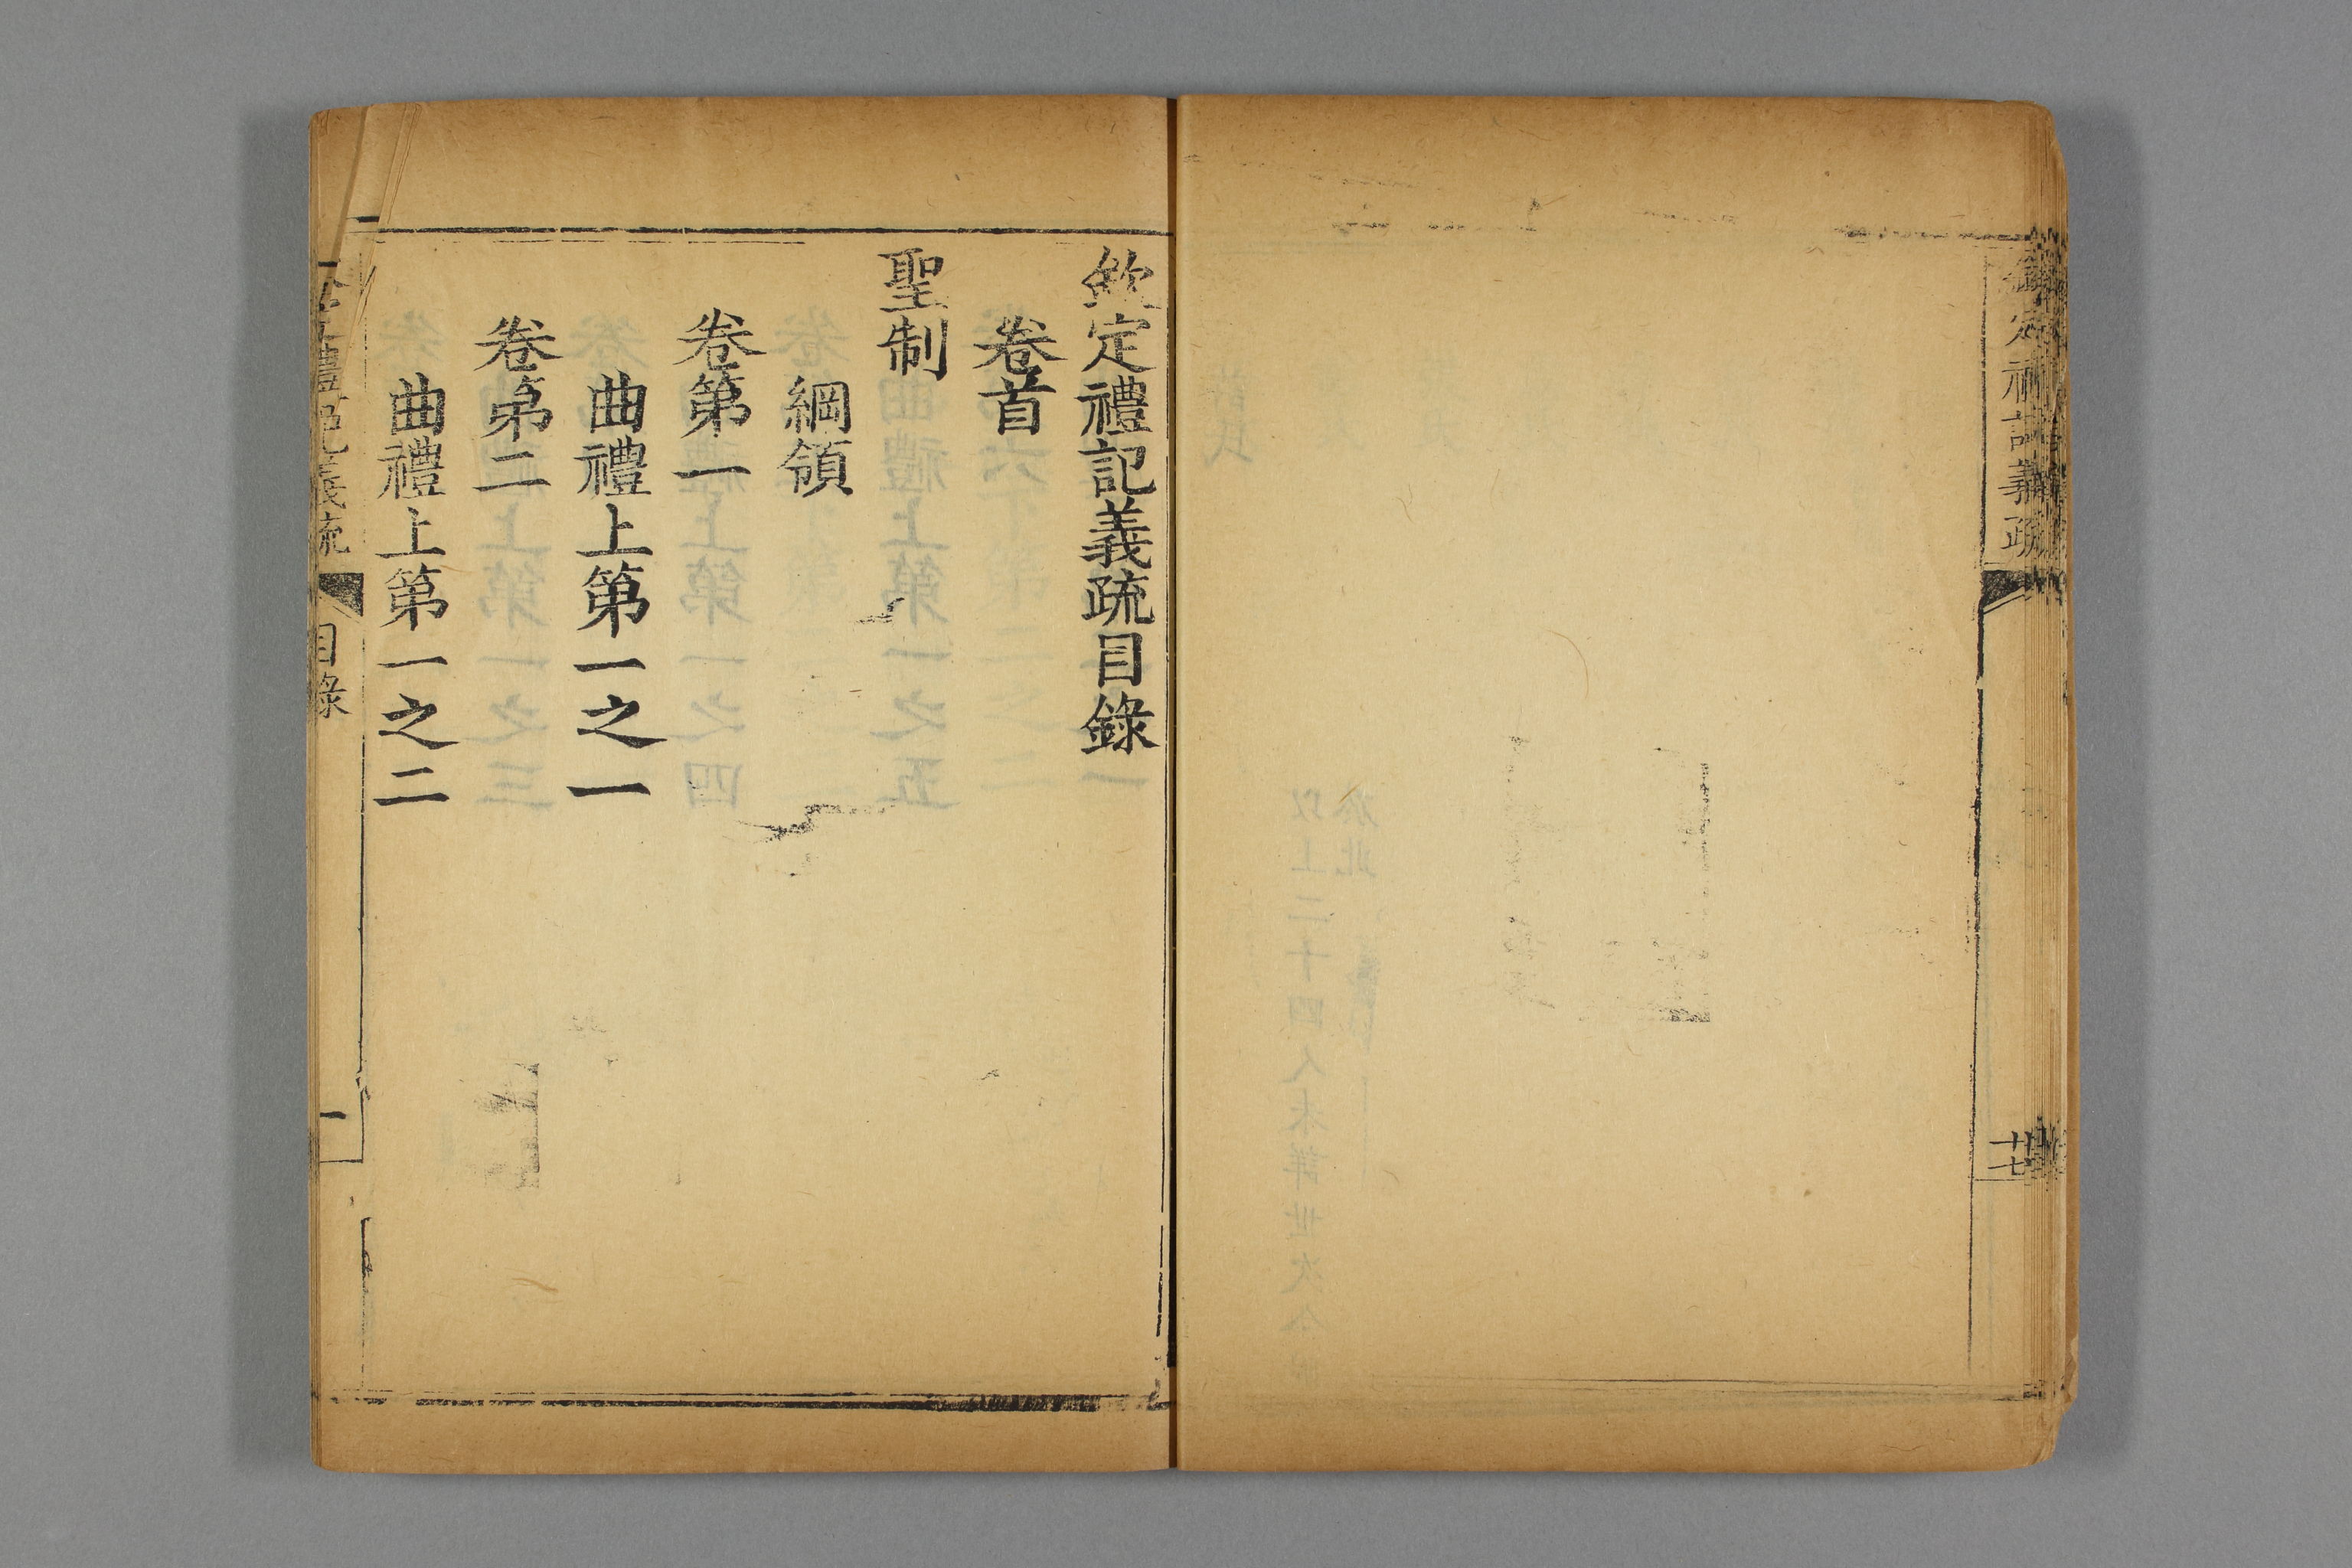 欽定禮記義疏
廿七
欽定禮記義疏目錄
卷首
聖制
綱領
卷第一
曲禮上第一之一
卷第二
曲禮上第一之二
禮記義疏
目錄
一